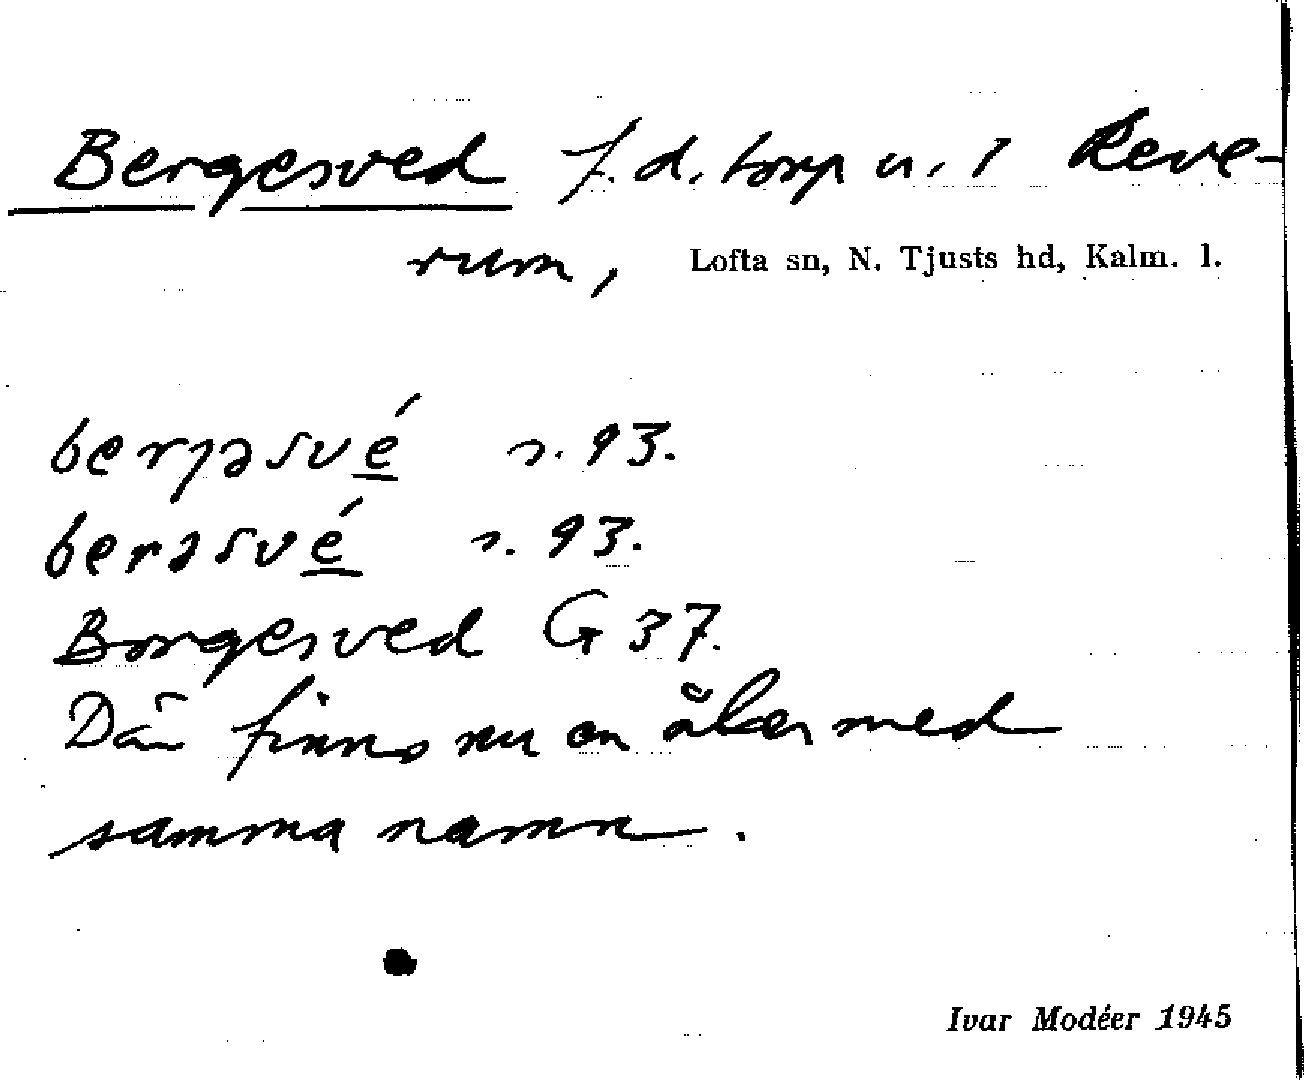 Bergesved f.d. torp u. 1 Reve-
rum, Lofta sn, N. Tjusts hd, Kalm. l.
berjəsvé s. 93.
berəsvé s. 93.
Borgesved G 37.
Där finns nu en åker med
samma namn.
Ivar Modéer 1945